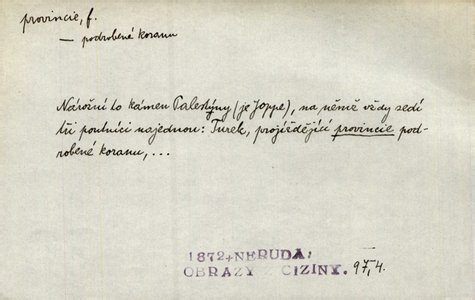 provincie, f.
— podrobené koranu
Nárožní to kámen Palestýny (je Joppe), na němž vždy sedí
tři poutníci najednou: Turek, projíždějící provincie pod-
robené koranu, ...
1872+NERUDA,
OBRAZY Z CIZINY. 97,4.